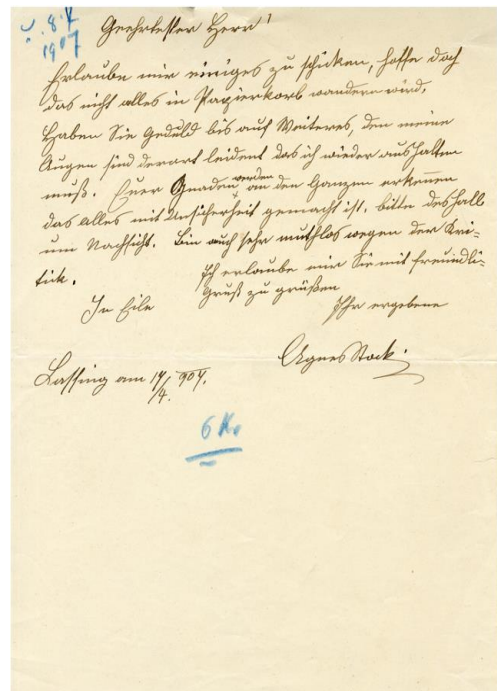 8.7
1907
Geehrtester Herr!
Erlaube mir einiges zu schicken, hoffe doch
das nicht alles in Papierkorb wandern wird.
Haben Sie Geduld bis auf Weiteres, den meine
Augen sind derart leident das ich wieder aushalten
muß. Euer Gnaden werden an den Ganzen erkennen
das alles mit Unsicherheit gemacht ist, bitte deshalb
um Nachsicht. Bin auch sehr muthlos wegen der Kri-
tick.
Ich erlaube mir Sie mit freundli-
Gruß zu grüßen
In Eile
Ihr ergebene
Agnes Stock
Lassing am 14/4. 907.
6 K.